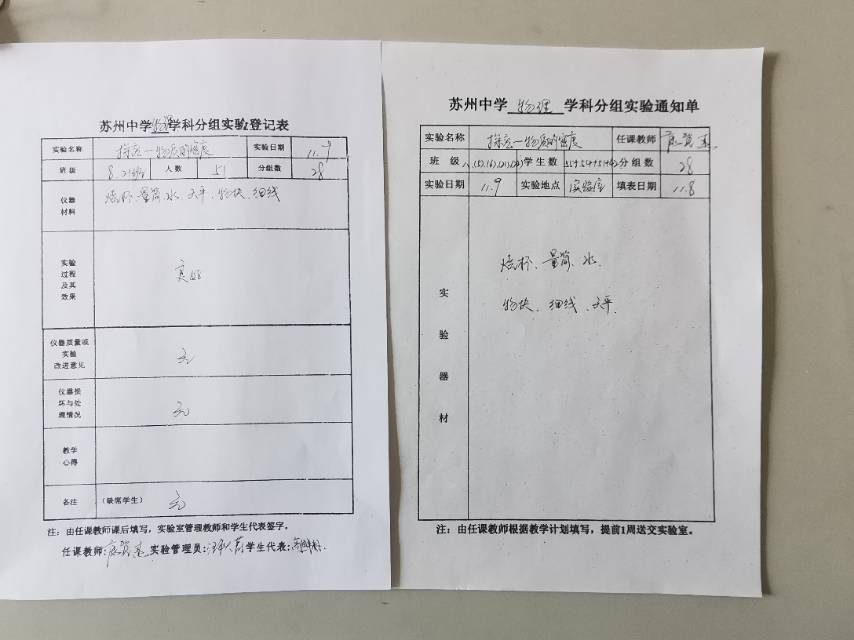 苏州中学物理学科分组实验登记表
实验名称 探究一物质的密度 实验日期 11.9
班级 8.21班 人数 51 分组数 28
仪器材料 烧杯、量筒、水、天平、物块、细线
实验
过程
及其
效果
良好
仪器质量或
实验
改进意见
无
仪器损
坏与处
理情况
无
教学
心得
备注 (缺席学生) 无
注：由任课教师课后填写，实验室管理教师和学生代表签字。
任课教师： 实验管理员： 学生代表：
苏州中学 物理 学科分组实验通知单
实验名称 探究一物质的密度 任课教师
班 级 学生数 分组数 28
实验日期 11.9 实验地点 实验室 填表日期 11.8
实
验
器
材
烧杯、量筒、水、
物块、细线、天平
注：由任课教师根据教学计划填写，提前1周送交实验室。